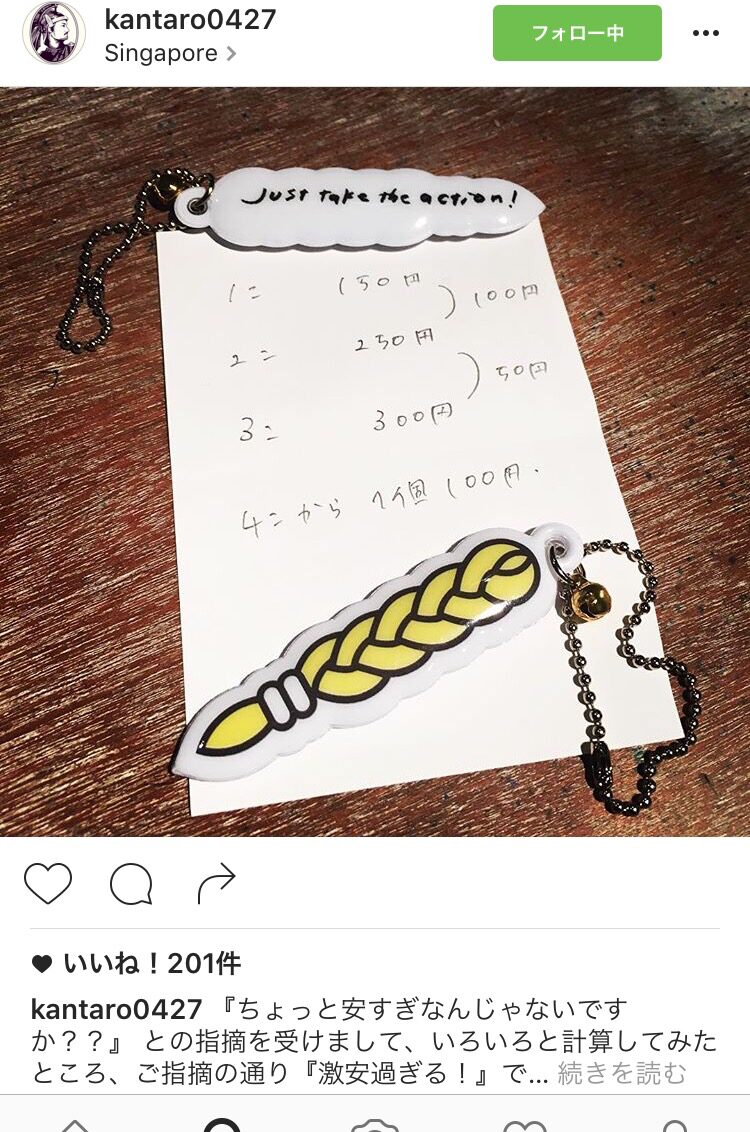 kantaro0427
Singapore
フォロー中
Just take the action!
1コ 150円
100円
2コ 250円
50円
3コ 300円
4コから 1個 100円.
いいね！201件
kantaro0427 『ちょっと安すぎなんじゃないです
か？？』 との指摘を受けまして、いろいろと計算してみた
ところ、ご指摘の通り『激安過ぎる！』で... 続きを読む